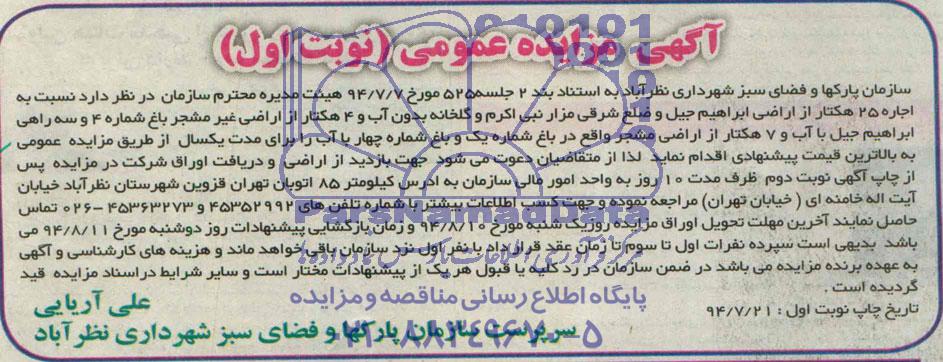 آگهی مزایده عمومی (نوبت اول)
سازمان پارکها و فضای سبز شهرداری نظرآباد به استناد بند ۲ جلسه ۵۲۵ مورخ ۹۴/۷/۷ هیئت مدیره محترم سازمان در نظر دارد نسبت به
اجاره ۲۵ هکتار از اراضی ابراهیم جیل و ضلع شرقی مزار نبی اکرم و گلخانه بدون آب و ۴ هکتار از اراضی غیر مشجر باغ شماره ۴ و سه راهی
ابراهیم جیل با آب و ۷ هکتار از اراضی مشجر واقع در باغ شماره یک و باغ شماره چهار با آب را برای مدت یکسال از طریق مزایده عمومی
به بالاترین قیمت پیشنهادی اقدام نماید لذا از متقاضیان دعوت می شود جهت بازدید از اراضی و دریافت اوراق شرکت در مزایده پس
از چاپ آگهی نوبت دوم ظرف مدت ۱۰ روز به واحد امور مالی سازمان به ادرس کیلومتر ۸۵ اتوبان تهران قزوین شهرستان نظرآباد خیابان
آیت اله خامنه ای ( خیابان تهران) مراجعه نموده و جهت کسب اطلاعات بیشتر با شماره تلفن های ۴۵۳۵۲۹۹۲ و ۴۵۳۶۳۲۷۳ -۰۲۶ تماس
حاصل نمایند آخرین مهلت تحویل اوراق مزایده روز یک شنبه مورخ ۹۴/۸/۱۰ و زمان بازگشایی پیشنهادات روز دوشنبه مورخ ۹۴/۸/۱۱ می
باشد بدیهی است سپرده نفرات اول تا سوم تا زمان عقد قرار داد با نفر اول نزد سازمان باقی خواهد ماند و هزینه های کارشناسی و آگهی
به عهده برنده مزایده می باشد در ضمن سازمان در رد کلیه یا قبول هر یک از پیشنهادات مختار است و سایر شرایط در اسناد مزایده قید
گردیده است .
تاریخ چاپ نوبت اول : ۹۴/۷/۲۱
علی آریایی
سرپرست سازمان پارکها و فضای سبز شهرداری نظرآباد
ParsNamadData
پایگاه اطلاع رسانی مناقصه و مزایده